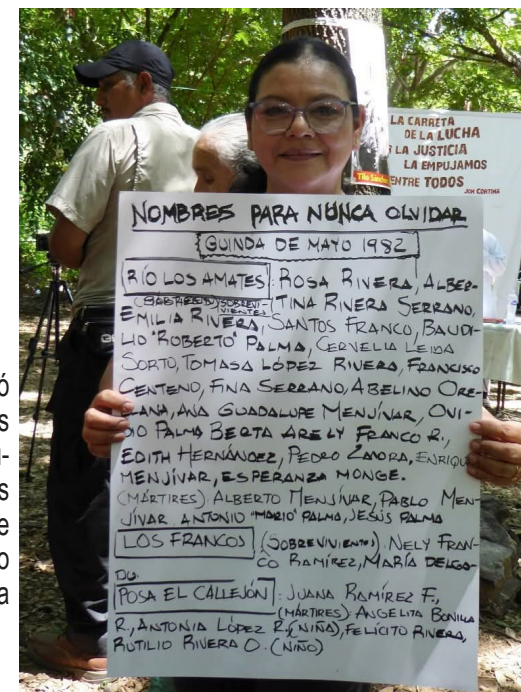 LA CARRETA
DE LA LUCHA
LA JUSTICIA
LA EMPUJAMOS
ENTRE TODOS
JON CORTINA
Tilo Sánchez
NOMBRES PARA NUNCA OLVIDAR
GUINDA DE MAYO 1982
RÍO LOS AMATES: ROSA RIVERA, ALBER-
(SOBREVI-
VIENTES)
TINA RIVERA SERRANO,
EMILIA RIVERA, SANTOS FRANCO, BAUDI-
LIO "ROBERTO" PALMA, CERVELIA LEIDA
SORTO, TOMASA LÓPEZ RIVERA, FRANCISCO
CENTENO, FINA SERRANO, ABELINO ORE-
LLANA, ANA GUADALUPE MENJÍVAR, OVI-
DIO PALMA BERTA ARELY FRANCO R.,
EDITH HERNÁNDEZ, PEDRO ZAMORA, ENRIQUE
MENJÍVAR, ESPERANZA MONGE.
(MÁRTIRES): ALBERTO MENJÍVAR, PABLO MEN-
JÍVAR, ANTONIO "MARIO" PALMA, JESÚS PALMA
LOS FRANCOS (SOBREVIVIENTES): NELY FRAN-
CO RAMÍREZ, MARÍA DELGA-
DO.
POSA EL CALLEJÓN: JUANA RAMÍREZ F.,
(MÁRTIRES): ANGELITA BONILLA
R., ANTONIA LÓPEZ R. (NIÑA), FELÍCITO RIVERA,
RUTILIO RIVERA O. (NIÑO)